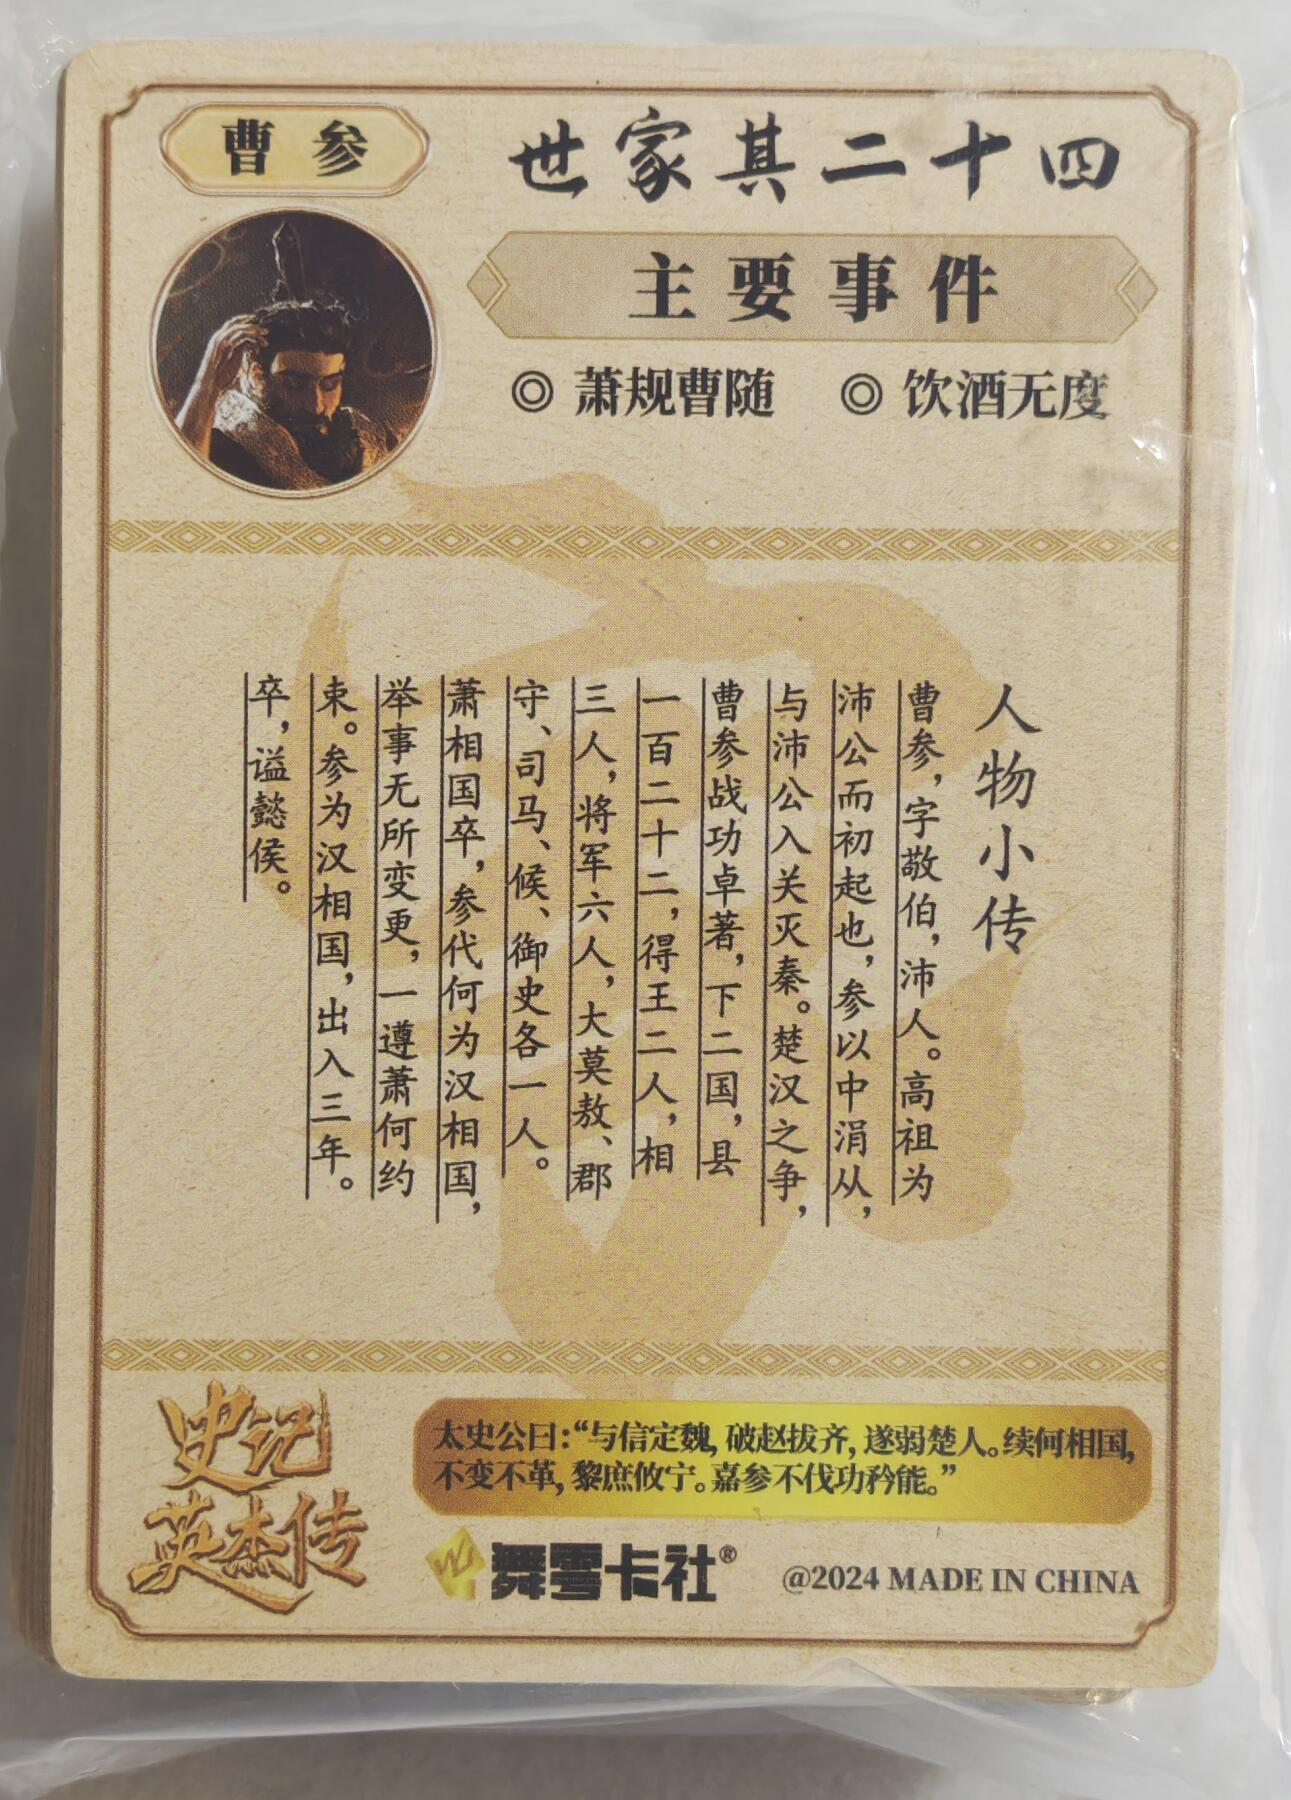 曹参
世家其二十四
主要事件
◎ 萧规曹随 ◎ 饮酒无度
人物小传
曹参，字敬伯，沛人。高祖为
沛公而初起也，参以中涓从，
与沛公入关灭秦。楚汉之争，
曹参战功卓著，下二国，县
一百二十二，得王二人，相
三人，将军六人，大莫敖、郡
守、司马、候、御史各一人。
萧相国卒，参代何为汉相国，
举事无所变更，一遵萧何约
束。参为汉相国，出入三年。
卒，谥懿侯。
史记
英杰传
太史公曰：“与信定魏，破赵拔齐，遂弱楚人。续何相国，
不变不革，黎庶攸宁。嘉参不伐功矜能。”
舞雩卡社®
@2024 MADE IN CHINA